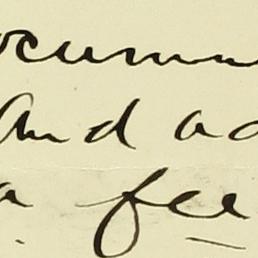 ocum
and ad
a fee